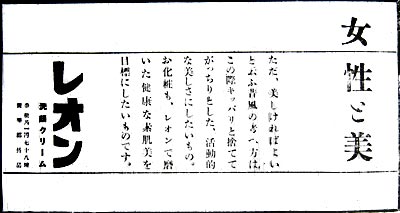 女性と美
たゞ、美しければよい
と云ふ昔風の考へ方は、
この際キッパリと捨てて
がっちりとした、活動的
な美しさにしたいもの。
お化粧も、レオンで磨
いた健康な素肌美を
目標にしたいものです。
レオン
洗顔クリーム